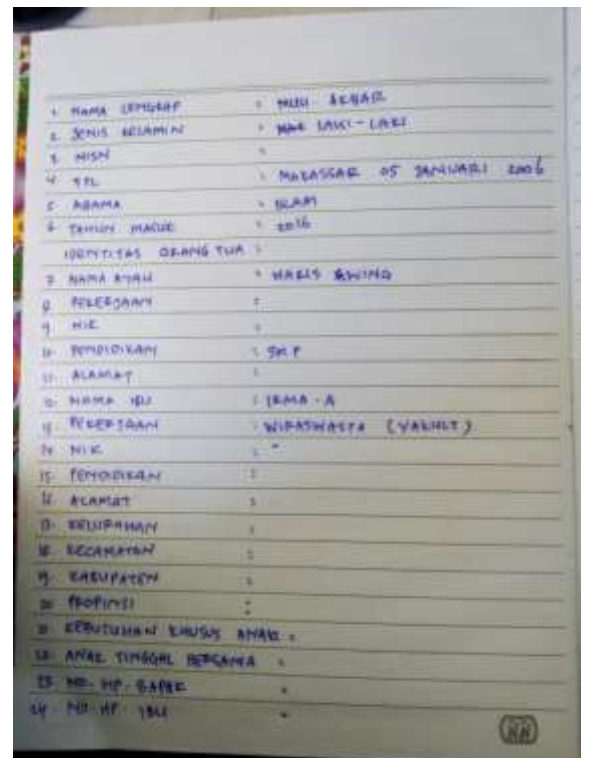 1. NAMA LENGKAP : MUH. AKBAR
2. JENIS KELAMIN : LAKI-LAKI
3. NISN :
4. TTL : MAKASSAR 05 JANUARI 2006
5. AGAMA : ISLAM
6. TAHUN MASUK : 2016
IDENTITAS ORANG TUA :
7. NAMA AYAH : HARIS AWING
8. PEKERJAAN :
9. NIK :
10. PENDIDIKAN : SMP
11. ALAMAT :
12. NAMA IBU : IRMA. A
13. PEKERJAAN : WIRASWASTA (YAKULT)
14. NIK : -
15. PENDIDIKAN :
16. ALAMAT :
17. KELURAHAN :
18. KECAMATAN :
19. KABUPATEN :
20. PROPINSI :
21. KEBUTUHAN KHUSUS ANAK :
22. ANAK TINGGAL BERSAMA :
23. NO. HP. BAPAK :
24. NO. HP. IBU :